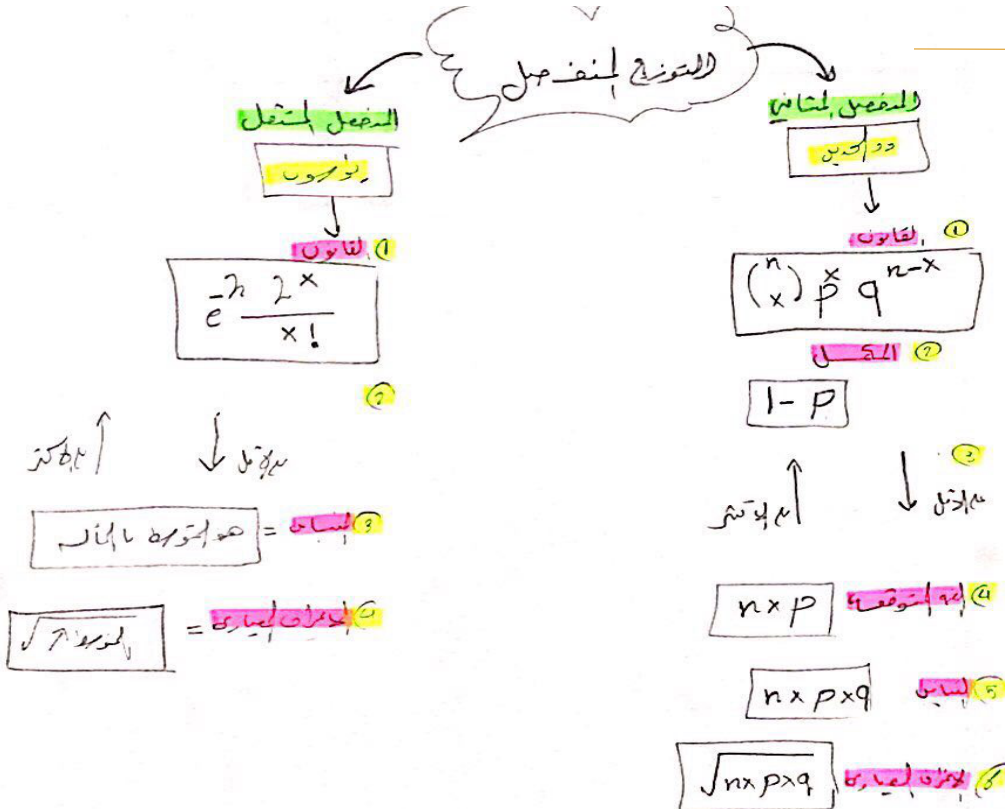 التوزيع المنفصل
المنفصل المتناهي
ذو الحدين
① القانون
(n x) p^x q^{n-x}
② المكمل
1 - P
③
على الأقل ↓ ↑ على الأكثر
④ القيمة المتوقعة
n x p
⑤ التباين
n x p x q
⑥ الانحراف المعياري
√n x p x q
المنفصل المستقل
بواسون
① القانون
e^{-λ} λ^x / x!
②
على الأقل ↓ ↑ على الأكثر
③ التباين = هو المتوسط
④ الانحراف المعياري = √المتوسط λ